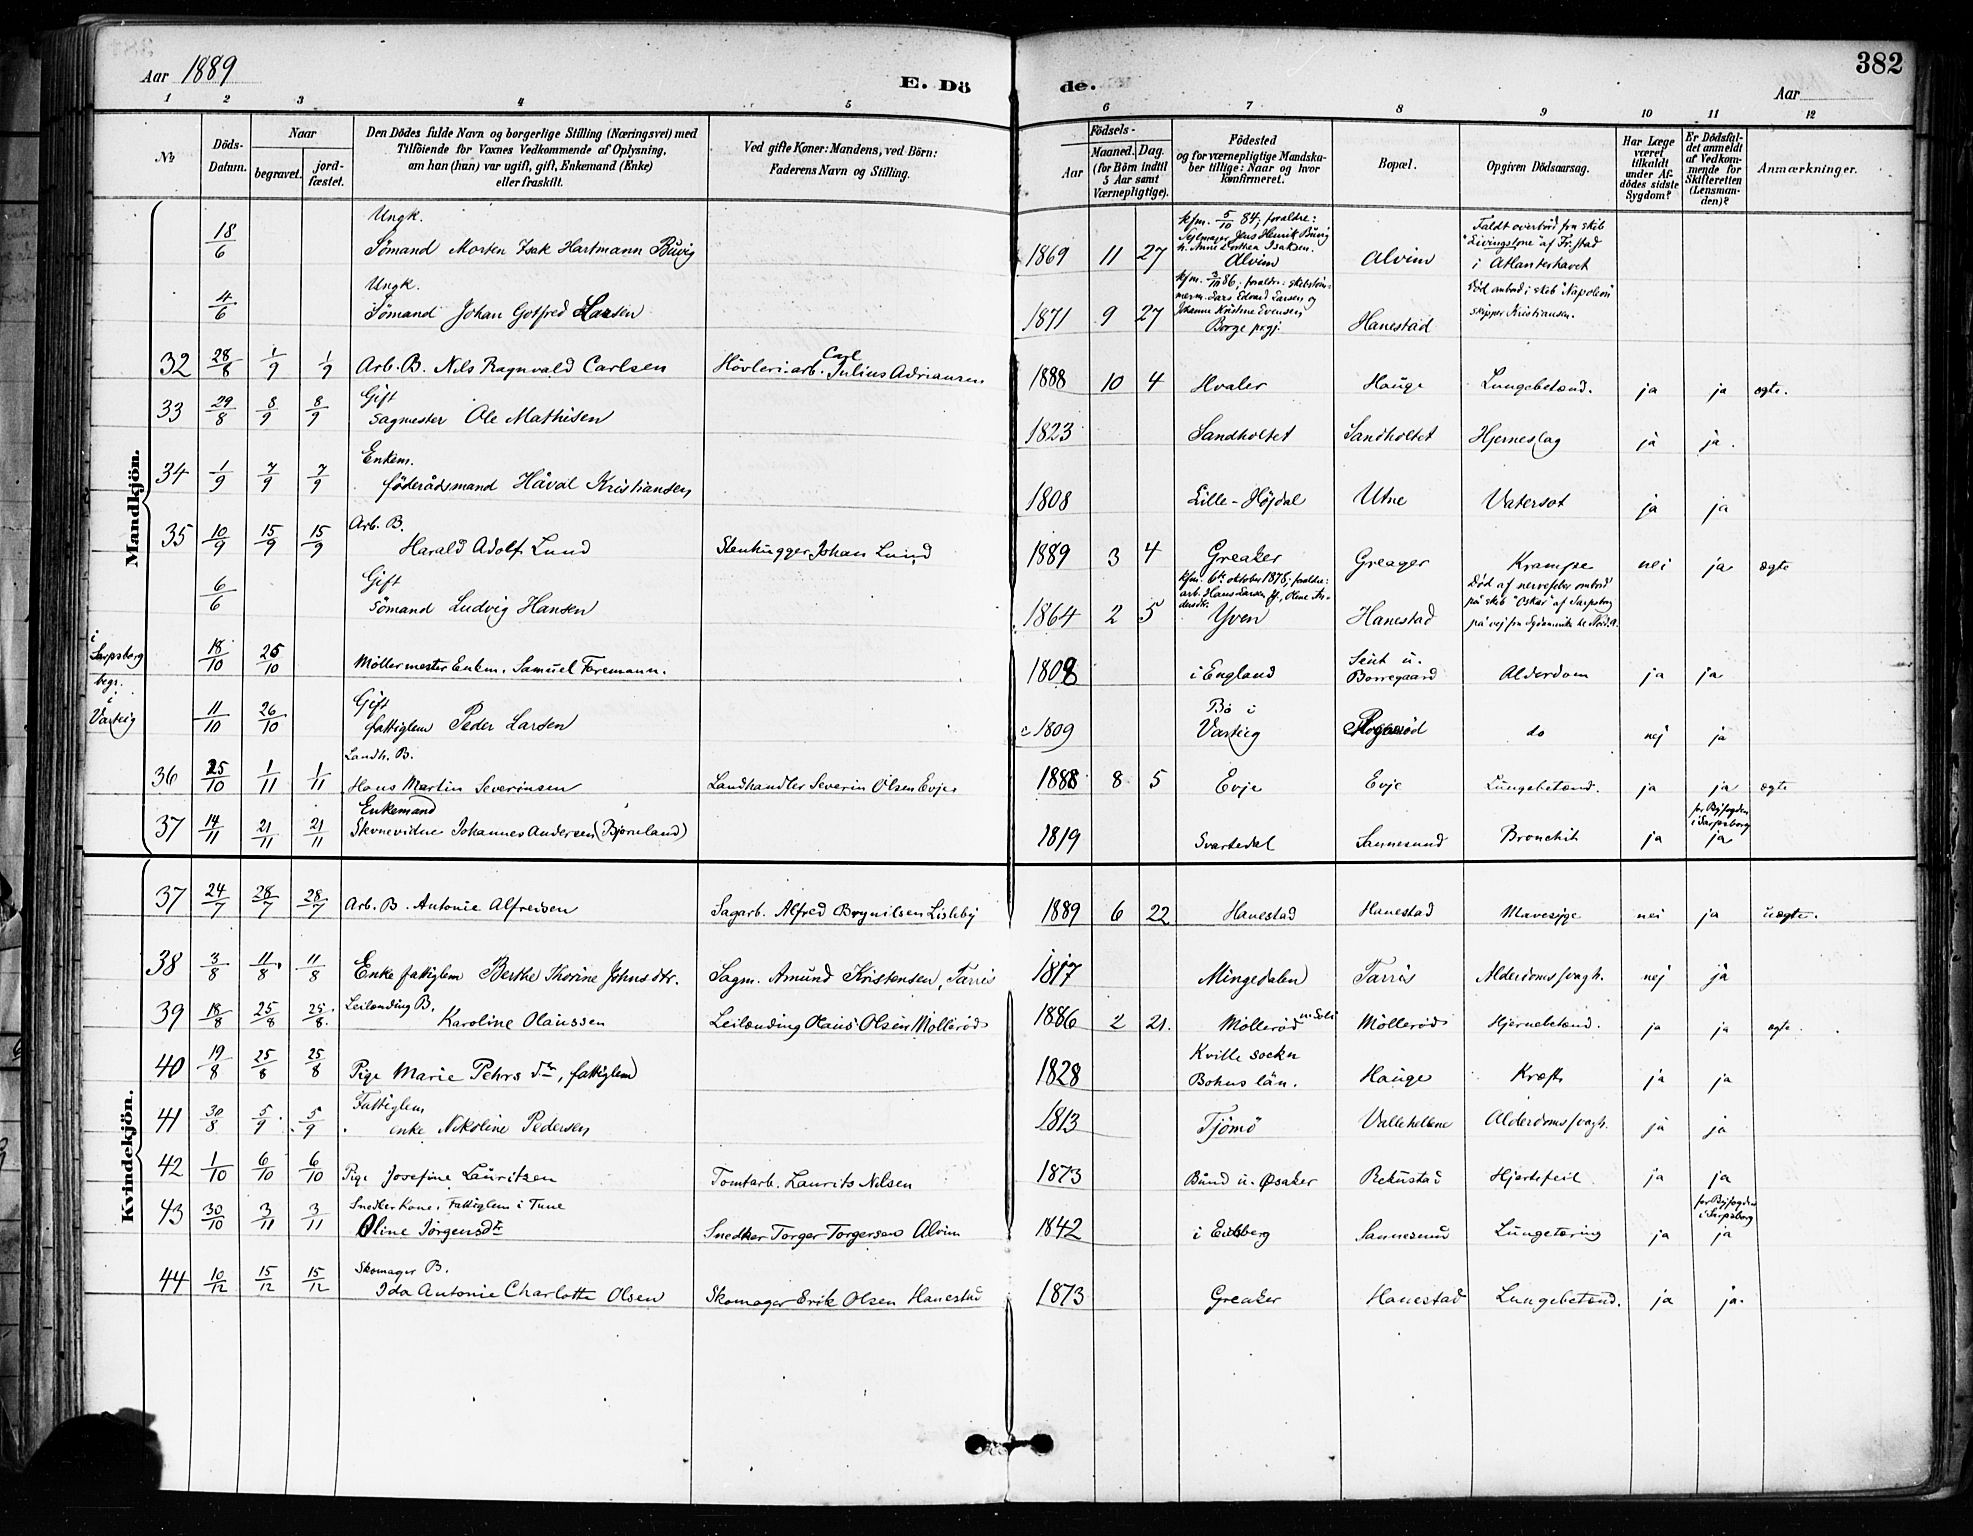 382
Aar 1889
E. Dö
de.
Aar
1 2 3 4 5 6 7 8 9 10 11 12
No
Döds-Datum.
Naar
begravet. jord-fæstet.
Den Dödes fulde Navn og borgerlige Stilling (Næringsvei) med
Tilföiende for Voxnes Vedkommende af Oplysning,
om han (hun) var ugift, gift, Enkemand (Enke)
eller fraskilt.
Ved gifte Koner: Mandens, ved Börn:
Faderens Navn og Stilling.
Födsels-
Aar
Maaned. Dag.
(for Börn indtil
5 Aar samt
Værnepligtige).
Födested
og for værnepligtige Mandska-
ber tillige: Naar og hvor
konfirmeret.
Bopæl.
Opgiven Dödsaarsag.
Har Læge
været
tilkaldt
under Af-
dödes sidste
Sygdom?
Er Dödsfal-
det anmeldt
af Vedkom-
mende for
Skifteretten
(Lensman-
den)?
Anmærkninger.
Mandkjön.
18/6 Ungk.
Sömand Morten Isak Hartmann Buvig
1869 11 27
kfm. 5/10 84; foraldre:
Sejlmager Jens Henrik Buvig
h. Anne Dorthea Isaksen.
Alvim Alvim
Faldt overbord fra skib
"Livingstone" af Fr.stad
i Atlanterhavet
4/6 Ungk.
Sömand Johan Gotfred Larsen
1871 9 27
kfm. 3/10 86; foraldre: skibstöm-
merm. Lars Edvard Larsen og
Johanne Kristine Evensen
Borge prgj. Hanestad
död ombord i skib "Napoleon"
skipper Kristiansen.
32 28/8 1/9 1/9 Arb. B. Nils Ragnvald Carlsen Hövleri-arb. Carl Julius Adriansen 1888 10 4 Hvaler Hauge Lungebetænd. ja ja ægte.
33 29/8 8/9 8/9 Gift
Sagmester Ole Mathisen 1823 Sandholtet Sandholtet Hjerneslag ja ja.
34 1/9 7/9 7/9 Enkem.
föderådsmand Håval Kristiansen 1808 Lille-Höjdal Utne Vatersot ja ja
35 10/9 15/9 15/9 Arb. B.
Harald Adolf Lund Stenhugger Johan Lund 1889 3 4 Greaker Greager Krampe nei ja ægte
6/6 Gift
Sömand Ludvig Hansen 1864 2 5
kfm. 6te oktober 1878; foraldre:
arb. Hans Larsen Yv., Olene An-
dersdtr.
Yven Hanestad
Död af nervefeber ombord
på skib "Oskar" af Sarpsborg
på vej fra Sydamerika til Nord.A.
i
Sarpsborg 18/10 25/10 Möllermester Enkm. Samuel Foremann. 1808 i England
Borregaard Alderdom ja ja
begr.
i
Varteig 11/10 26/10 Gift
fattiglem Peder Larsen 1809 Bö i
Varteig do nej ja
36 25/10 1/11 1/11 Landh. B.
Hans Martin Severinsen Landhandler Severin Olsen Evje 1888 8 5 Evje Evje Lungebetænd. ja ja ægte
37 14/11 21/11 21/11 Enkemand
Johannes Andersen (Bjørneland) 1819 Svartedal Sannesund Bronchit ja
for Byfogden
i Sarpsborg
ja
Kvindekjön.
37 24/7 28/7 28/7 Arb. B. Antonie Alfredsen Sagarb. Alfred Brynilsen Lisleby 1889 6 22 Hanestad Hanestad Mavesyge nei ja uægte.
38 3/8 11/8 11/8 Enke fattiglem Berthe Thorine Johnsdtr. Sagm. Amund Kristensen, Tarris 1817 Mingedalen Tarris Alderdomssvagh. nej ja
39 18/8 25/8 25/8 Leilending B.
Karoline Olaussen Leilending Olaus Olsen Mölleröd 1886 2 21. Möllerød Möllerød Hjernebetænd. ja ja ægte.
40 19/8 25/8 25/8 Pige Marie Pehrs dtr, fattiglem 1828 Kville socken
Bohus län. Hauge Kræft ja ja
41 30/8 5/9 5/9 Fattiglem
enke Nikoline Pedersen 1813 Tjömö Vallehellene Alderdomssvagh. ja ja
42 1/10 6/10 6/10 Pige Josefine Lauritsen Tomtarb. Laurits Nilsen 1873 Bund u. Øsaker Rekustad Hjertefeil ja ja
43 30/10 3/11 3/11 Snedker Kone, Fattiglem i Tune
Oline Jörgensdtr Snedker Torger Torgersen Alvim 1842 i Eidsberg Sannesund Lungetæring ja
for Byfogden
i Sarpsborg
ja
44 10/12 15/12 15/12 Skomager B.
Ida Antonie Charlotte Olsen Skomager Erik Olsen Hanestad 1873 Greaker Hanestad Lungebetænd. ja ja.